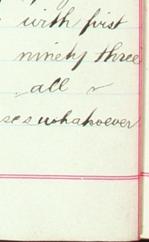 with first
ninety three
all
ses whatsoever